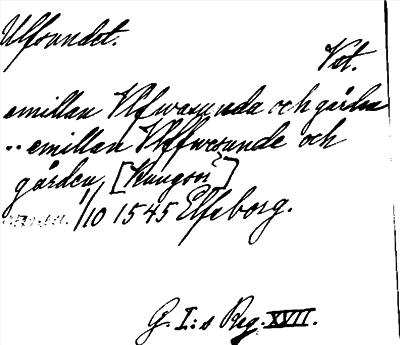 Ulfsundet.
Vst.
emillan Ulfwasunda och gården
.. emillan Ulffwesunde och
gården, [Kungsör?]
/10 1545 Elfsborg.
G. I:s Reg. XVII.